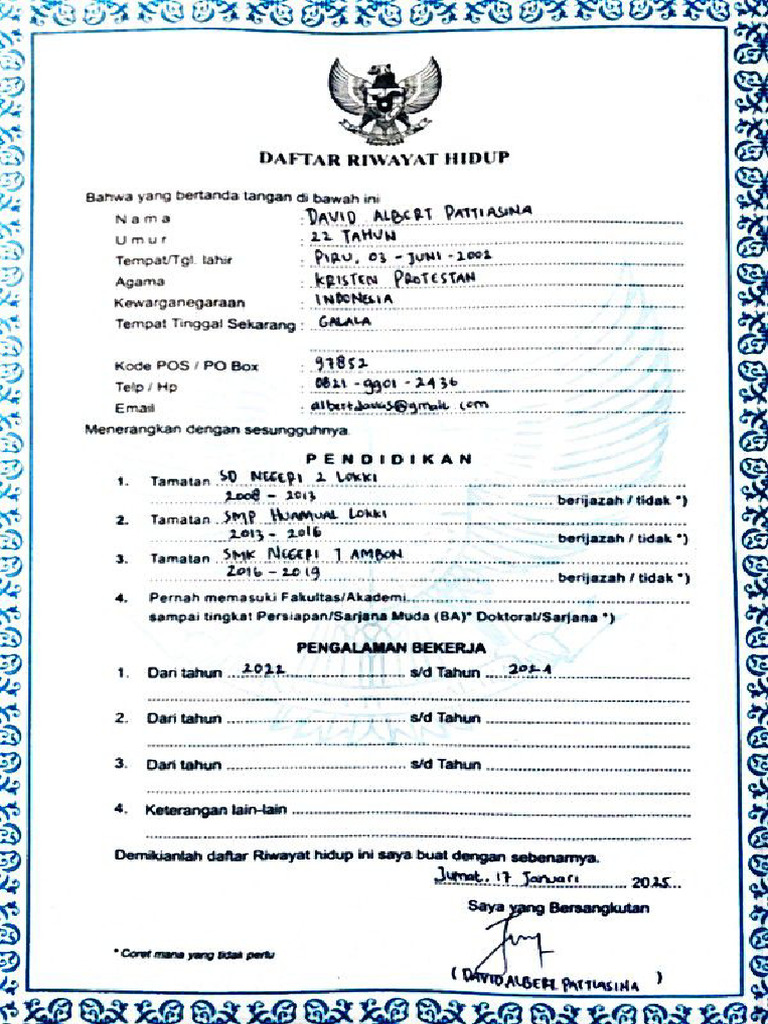 DAFTAR RIWAYAT HIDUP
Bahwa yang bertanda tangan di bawah ini
Nama : DAVID ALBERT PATTIASINA
Umur : 22 TAHUN
Tempat/Tgl. lahir : PIRU, 03 - JUNI - 2002
Agama : KRISTEN PROTESTAN
Kewarganegaraan : INDONESIA
Tempat Tinggal Sekarang : GALALA
Kode POS / PO Box : 97852
Telp / Hp : 0821 - 9901 - 2436
Email : @gmail.com
Menerangkan dengan sesungguhnya.
PENDIDIKAN
1. Tamatan SD NEGERI 2 LOKKI
2008 - 2013 berijazah / tidak *)
2. Tamatan SMP HUAMUAL LOKKI
2013 - 2016 berijazah / tidak *)
3. Tamatan SMK NEGERI 7 AMBON
2016 - 2019 berijazah / tidak *)
4. Pernah memasuki Fakultas/Akademi
sampai tingkat Persiapan/Sarjana Muda (BA)* Doktoral/Sarjana *)
PENGALAMAN BEKERJA
1. Dari tahun 2022 s/d Tahun
2. Dari tahun s/d Tahun
3. Dari tahun s/d Tahun
4. Keterangan lain-lain
Demikianlah daftar Riwayat hidup ini saya buat dengan sebenarnya.
Jumat, 17 Januari 2025
Saya yang Bersangkutan
* Coret mana yang tidak perlu
( DAVID ALBERT PATTIASINA )